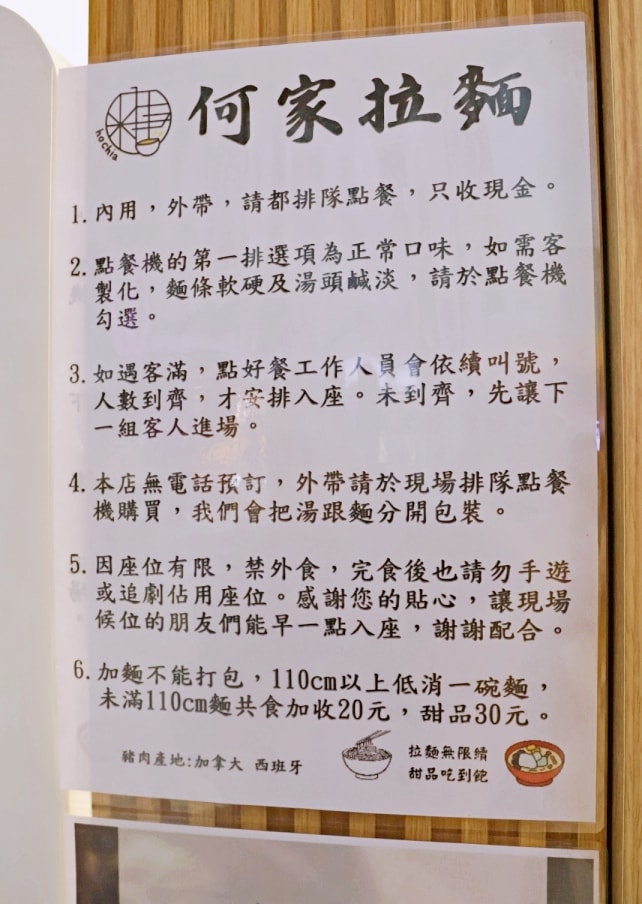 hochia
何家拉麵
1. 內用，外帶，請都排隊點餐，只收現金。
2. 點餐機的第一排選項為正常口味，如需客
製化，麵條軟硬及湯頭鹹淡，請於點餐機
勾選。
3. 如遇客滿，點好餐工作人員會依續叫號，
人數到齊，才安排入座。未到齊，先讓下
一組客人進場。
4. 本店無電話預訂，外帶請於現場排隊點餐
機購買，我們會把湯跟麵分開包裝。
5. 因座位有限，禁外食，完食後也請勿手遊
或追劇佔用座位。感謝您的貼心，讓現場
候位的朋友們能早一點入座，謝謝配合。
6. 加麵不能打包，110cm以上低消一碗麵，
未滿110cm麵共食加收20元，甜品30元。
豬肉產地:加拿大 西班牙
拉麵無限續
甜品吃到飽